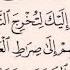 إِلَيْكَ لِتُخْرِجَ ٱلنَّ
هِمْ إِلَىٰ صِرَٰطِ ٱلْعَ